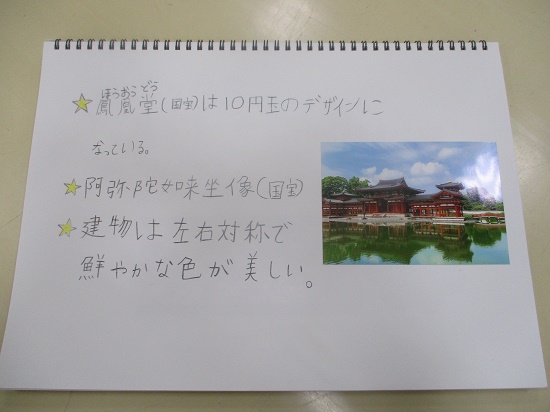 ほうおうどう
☆鳳凰堂(国宝)は10円玉のデザインに
なっている。
☆阿弥陀如来坐像(国宝)
☆建物は左右対称で
鮮やかな色が美しい。